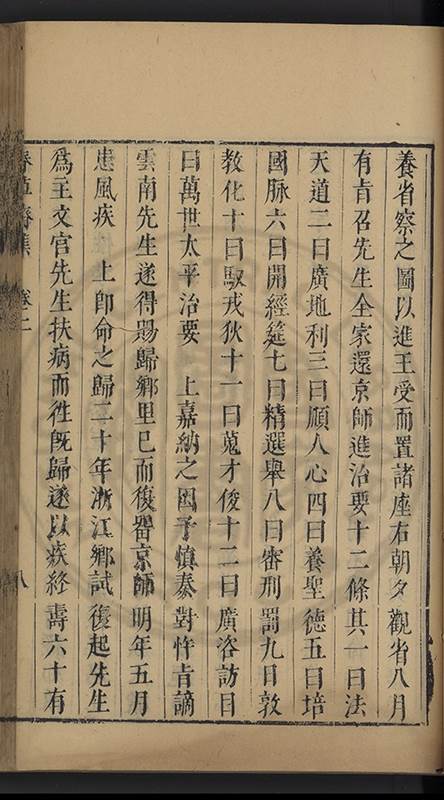 養省察之圖以進王受而置諸座右朝夕觀省八月
有旨召先生全家還京師進治要十二條其一曰法
天道二曰廣地利三曰順人心四曰養聖德五曰培
國脉六曰開經筵七曰精選舉八曰審刑罰九曰敦
教化十曰馭戎狄十一曰蒐才俊十二曰廣咨訪目
曰萬世太平治要 上嘉納之因子慎泰對忤旨謫
雲南先生遂得賜歸鄉里已而復畱京師明年五月
患風疾 上卽命之歸二十年浙江鄉試復起先生
爲主文官先生扶病而徃旣歸遂以疾終壽六十有
卷二
八